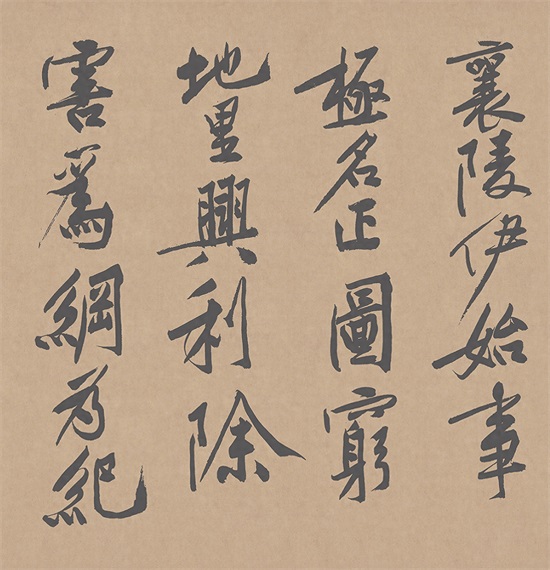 襄陵伊始事
極名正圖窮
地里興利除
害爲綱爲紀